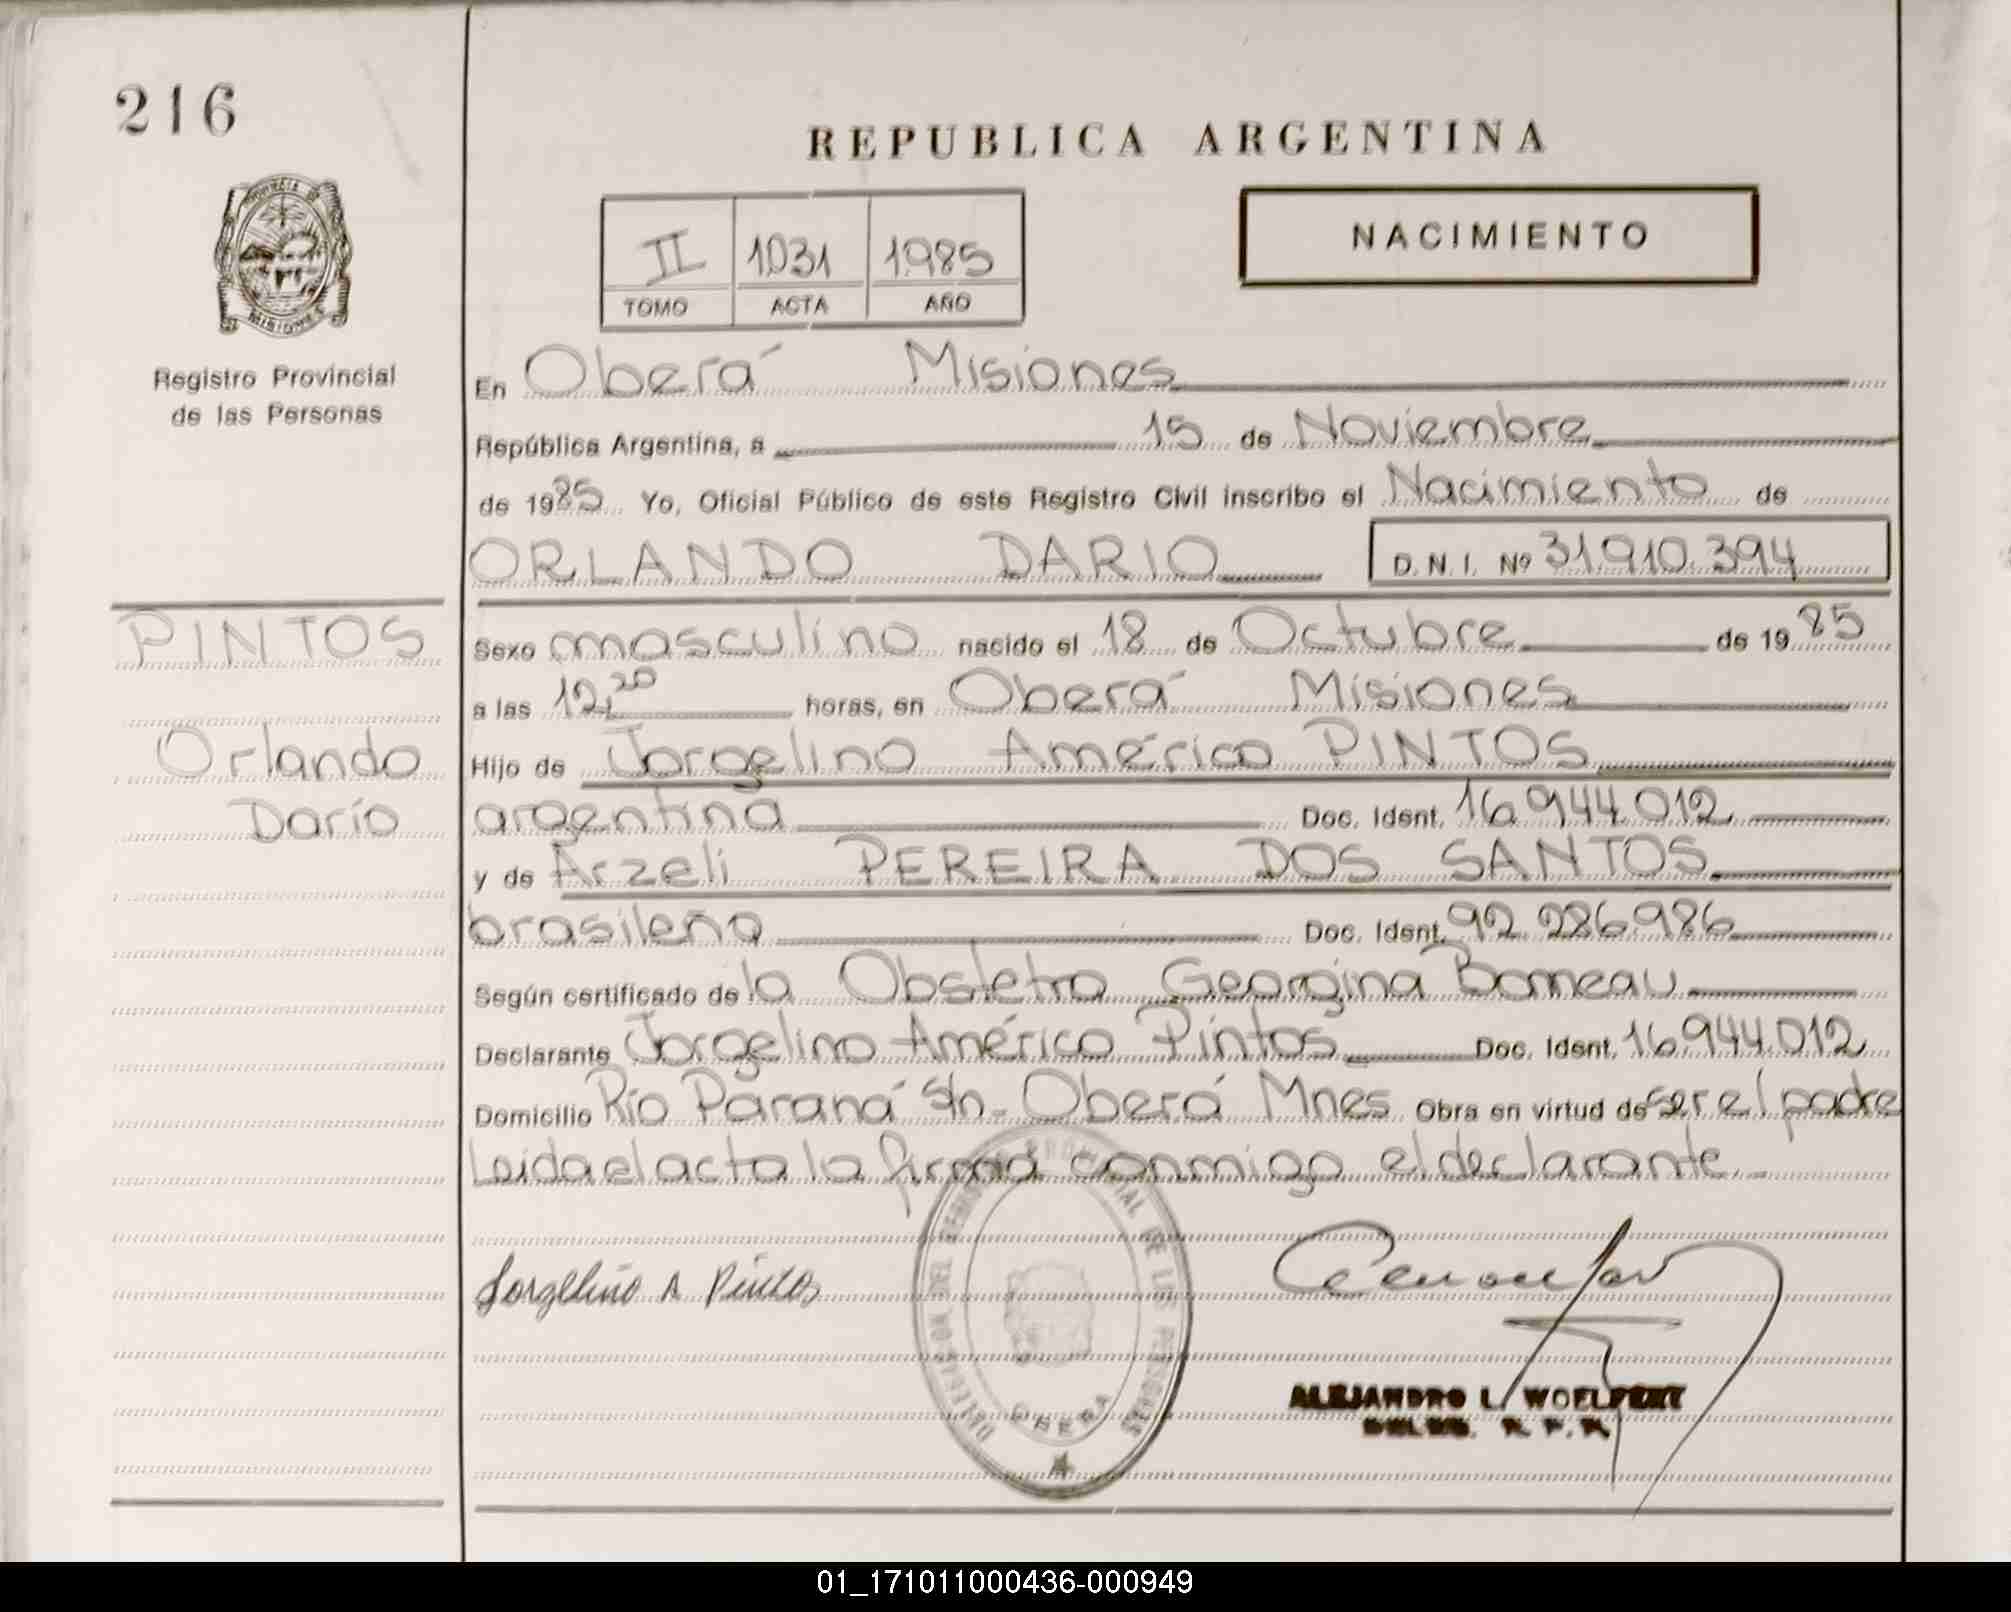 216
REPUBLICA ARGENTINA
II 1031 1985
TOMO ACTA AÑO
NACIMIENTO
PROVINCIA DE
MISIONES
Registro Provincial
de las Personas
En Oberá Misiones
República Argentina, a 15 de Noviembre
de 1985 Yo, Oficial Público de este Registro Civil inscribo el Nacimiento de
ORLANDO DARIO D.N.I. Nº 31.910.394
PINTOS
Orlando
Darío
Sexo masculino nacido el 18 de Octubre de 1985
a las 12,20 horas, en Oberá Misiones
Hijo de Jorgelino Américo PINTOS
argentina Doc. Ident. 16.944.012
y de Arzeli PEREIRA DOS SANTOS
brasileña Doc. Ident. 92.286.986
Según certificado de la Obstetra Georgina
Declarante Jorgelino Américo Pintos Doc. Ident. 16.944.012
Domicilio Río Paraná s/n- Oberá Mnes Obra en virtud de ser el padre
Leida el acta la firma conmigo el declarante.-
Jorgelino A Pintos
DELEGACION DEL REGISTRO PROVINCIAL DE LAS PERSONAS
OBERA
ALEJANDRO L. WOELFERT
DELEG. R. P. P.
01_171011000436-000949